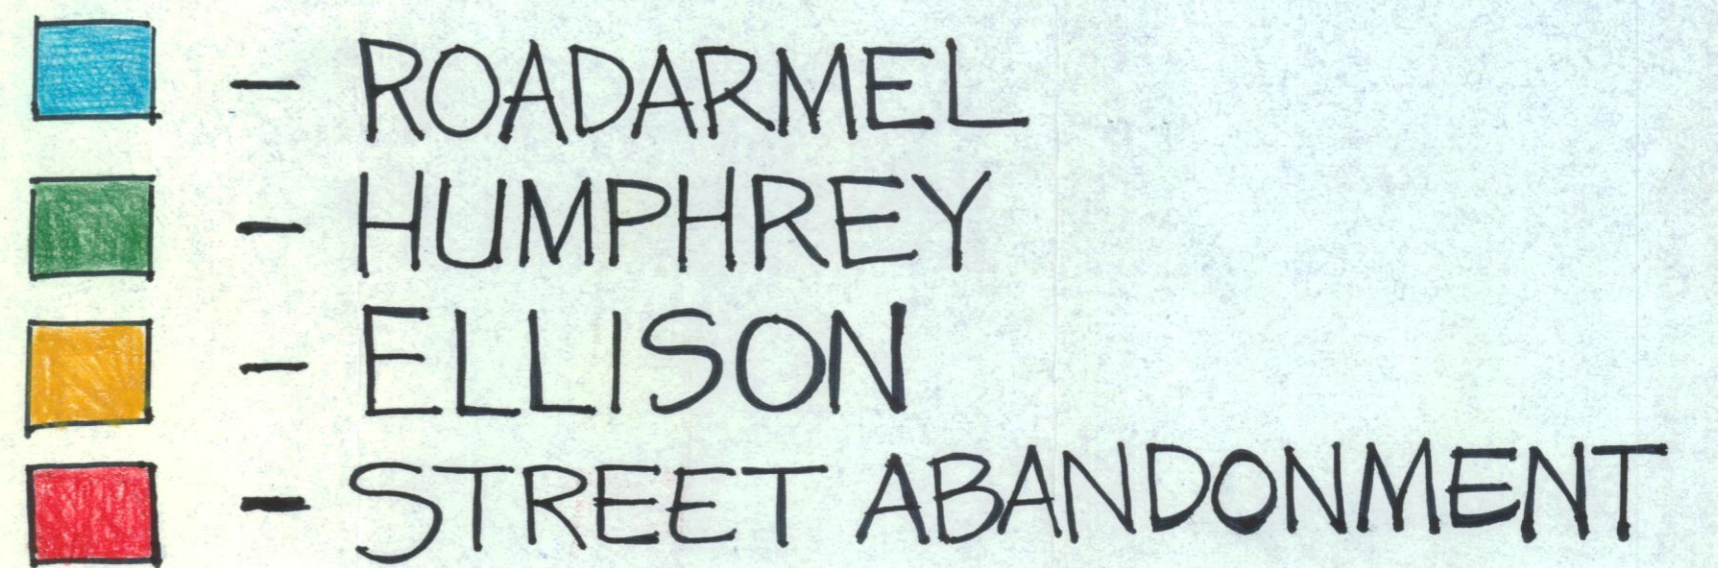 - ROADARMEL
- HUMPHREY
- ELLISON
- STREET ABANDONMENT